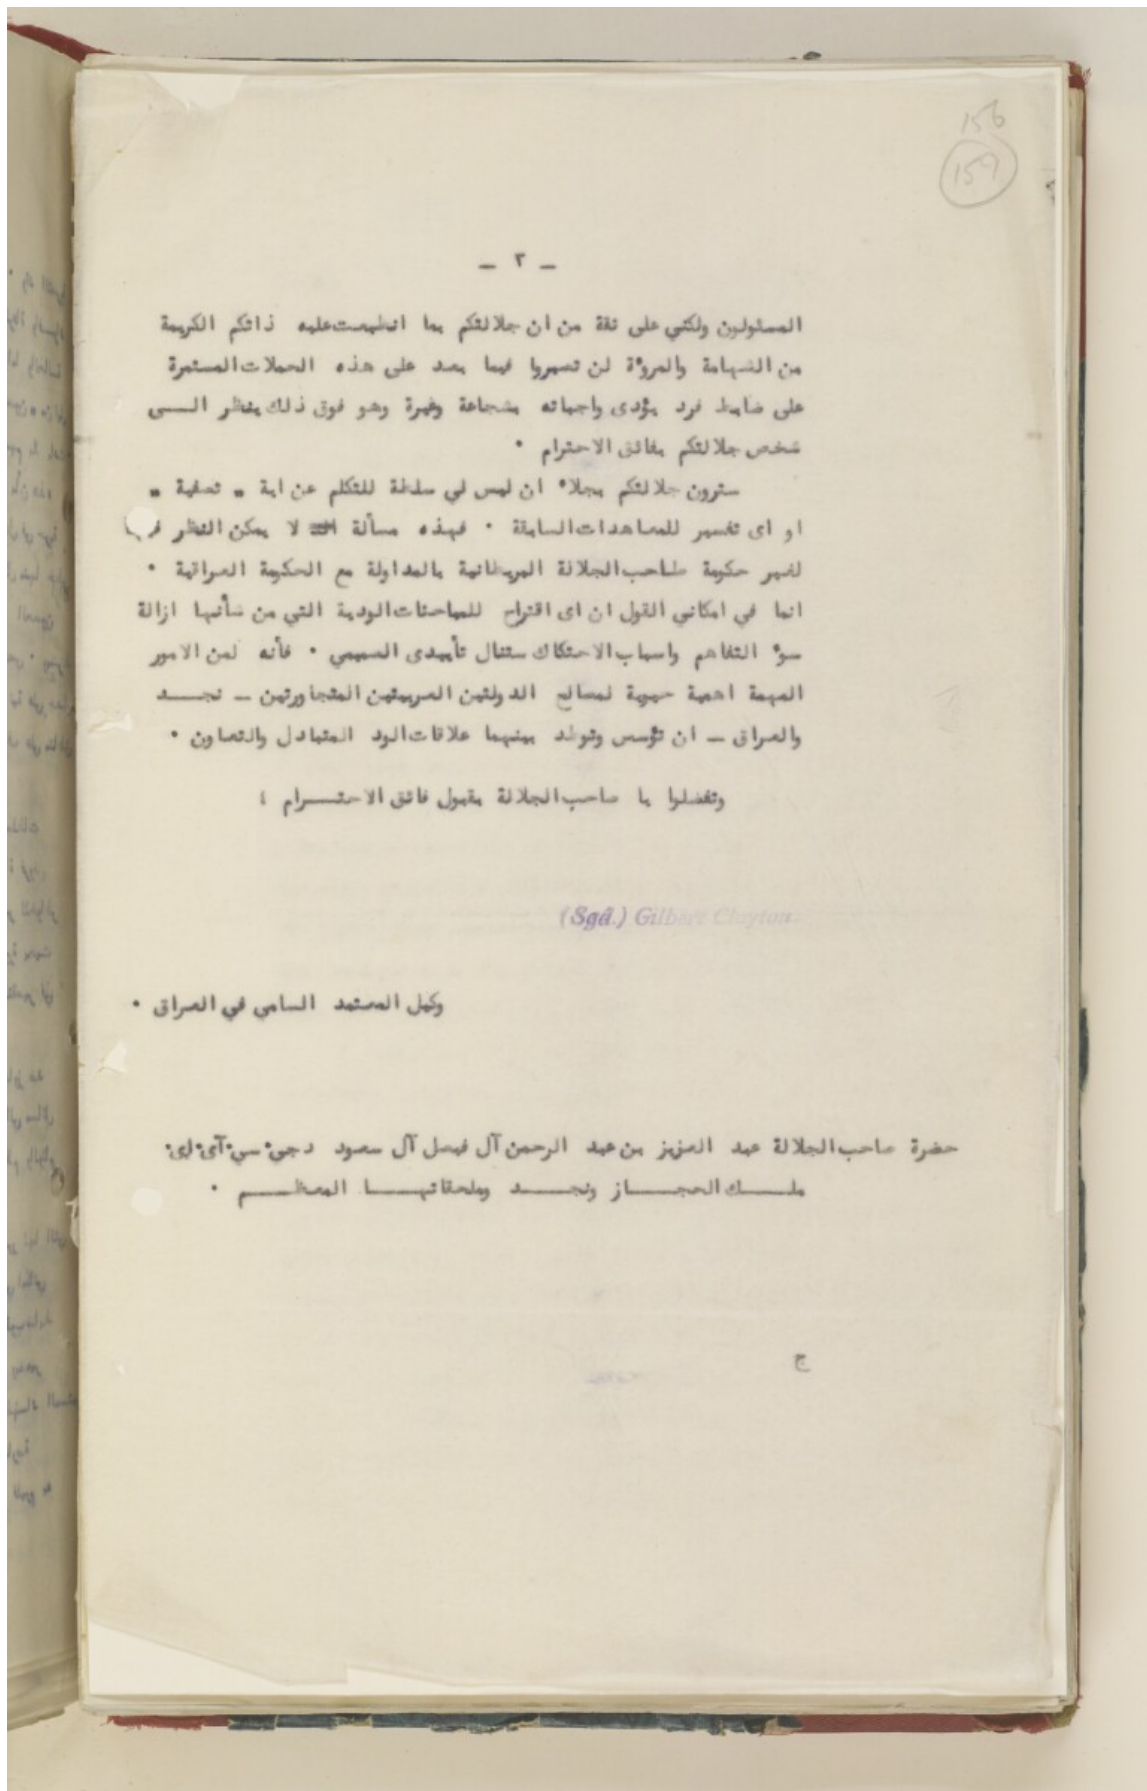 156
159
– ٢ –
المسئولون ولكني على ثقة من ان جلالتكم بما انطبعت عليه ذاتكم الكريمة
من الشهامة والمروٴة لن تصبروا فيما بعد على هذه الحملات المستمرة
على ضابط فرد يؤدى واجباته بشجاعة وغيرة وهو فوق ذلك ينظر الـــى
شخص جلالتكم بفائق الاحترام ٠
سترون جلالتكم بجلاٴ ان ليس لي سلطة للتكلم عن اية " تصفية "
او اى تفسير للمعاهدات السابقة ٠ فهذه مسألة لا يمكن النظر فيها
لغير حكومة صاحب الجلالة البريطانية بالمداولة مع الحكومة العراقية ٠
انما في امكاني القول ان اى اقتراح للمباحثات الودية التي من شأنها ازالة
سوٴ التفاهم واسباب الاحتكاك ستنال تأييدى الصميمي ٠ فأنه لمن الامور
المهمة اهمية حيوية لمصالح الدولتين العربيتين المتجاورتين ــ نجـــد
والعراق ــ ان تؤسس وتوطد بينهما علاقات الود المتبادل والتعاون ٠
وتفضلوا يا صاحب الجلالة بقبول فائق الاحتـــرام ؛
(Sgd.) Gilbert Clayton.
وكيل المعتمد السامي في العراق ٠
حضرة صاحب الجلالة عبد العزيز بن عبد الرحمن آل فيصل آل سعود دجي٠سي٠آى٠اى٠
ملـــك الحجـــاز ونجـــد وملحقاتهـــا المعظـــم ٠
ج